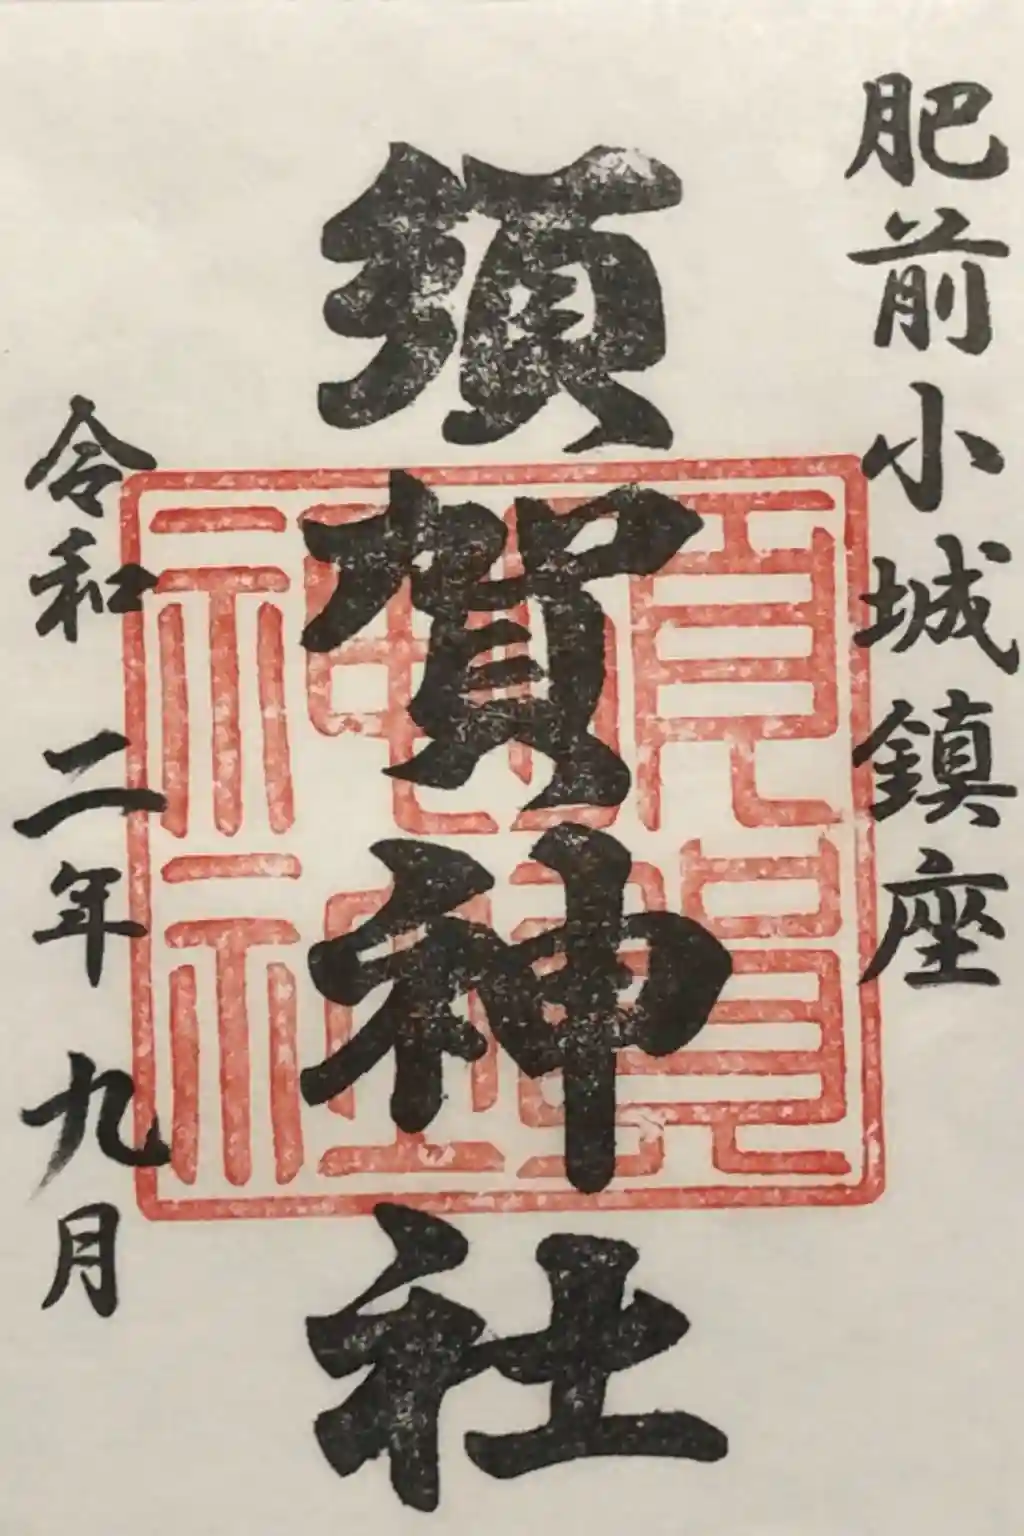 肥前小城鎮座
須賀神社
令和二年九月
須賀神社